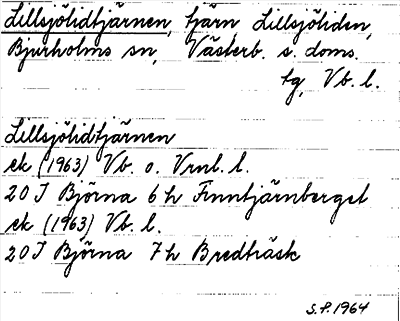 Lillsjölidtjärnen, tjärn, Lillsjöliden,
Bjurholms sn, Västerb. s. doms.
tg, Vb. l.
Lillsjölidtjärnen
ek (1963) Vb. o. Vrnl. l.
20 J Björna 6 h Finntjärnberget
ek (1963) Vb. l.
20 J Björna 7 h Bredträsk
S.P. 1964